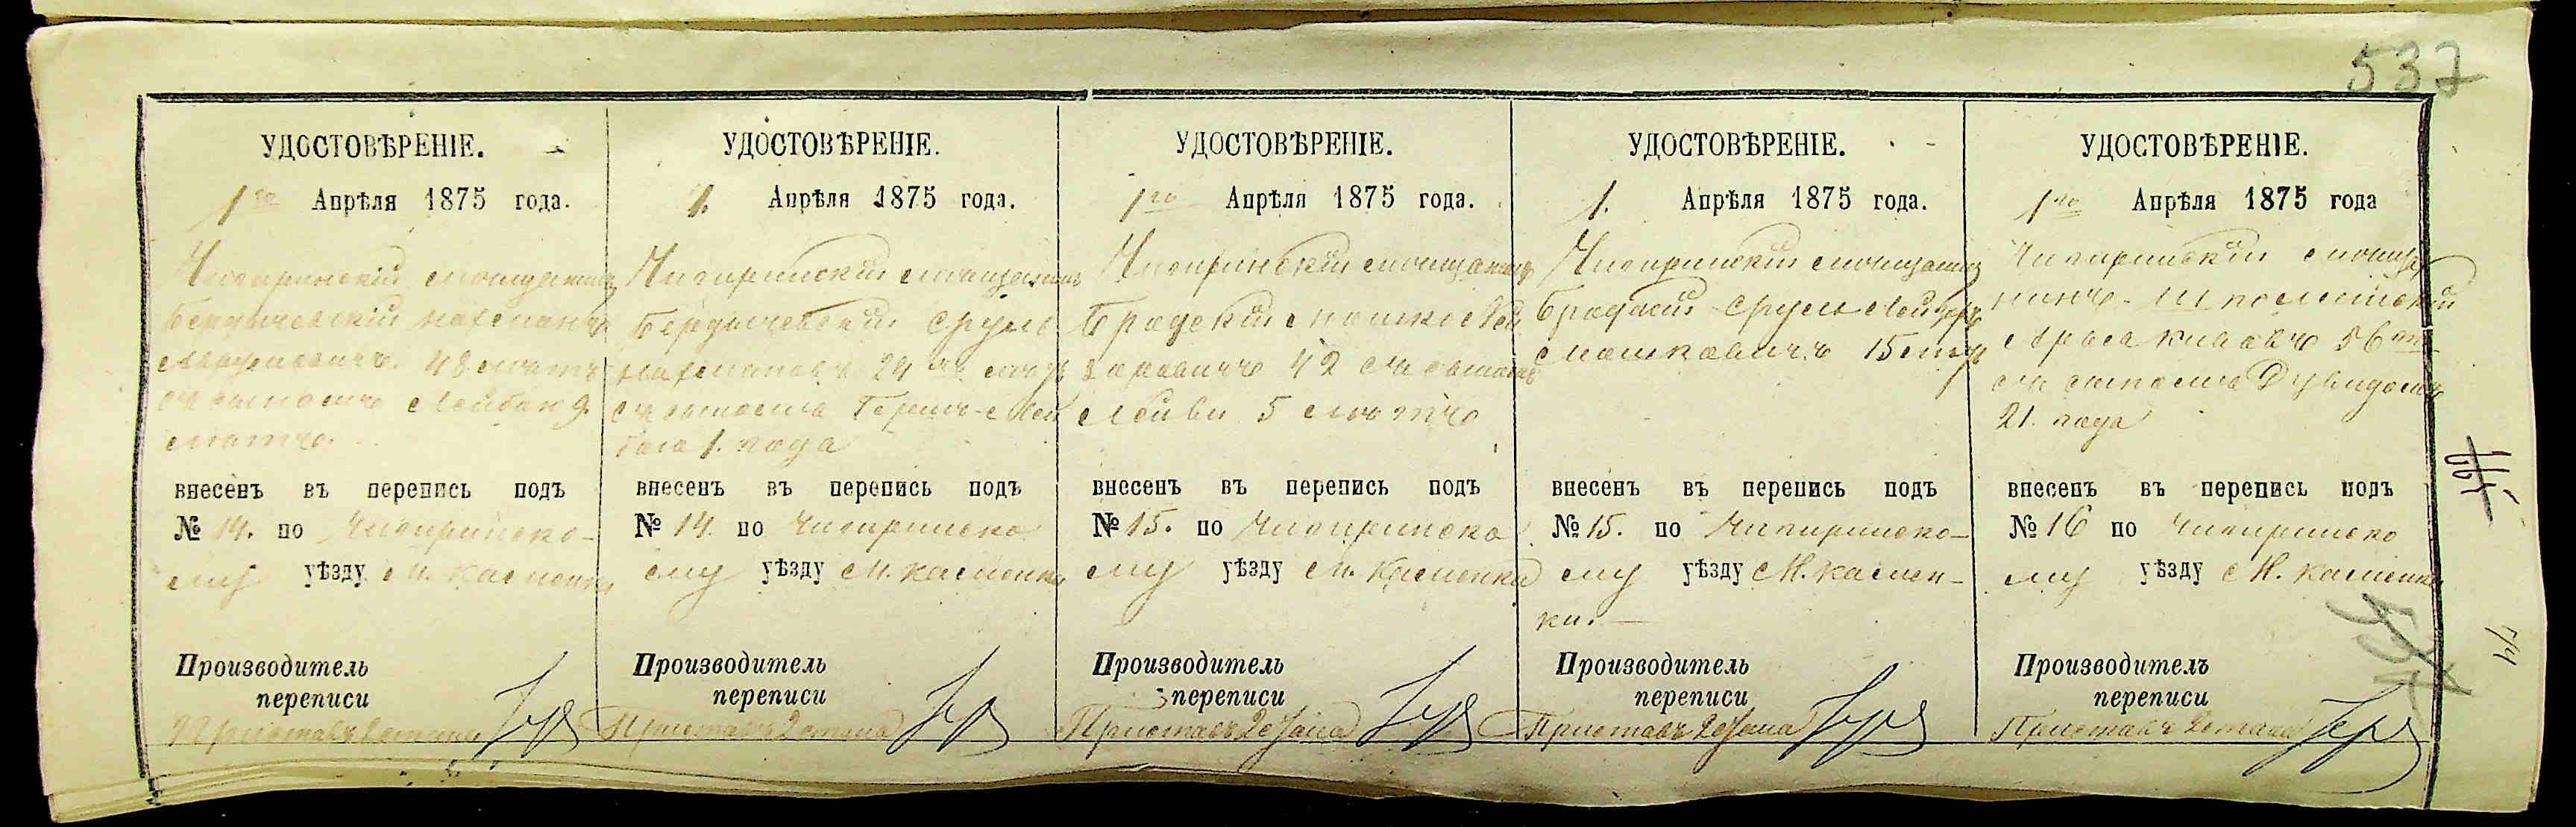 537
УДОСТОВѢРЕНІЕ.
1го Апрѣля 1875 года.
Чигиринскій мѣщанинъ
Бердичевскій Нахманъ
48 лѣтъ
съ сыномъ Лейбою 9
лѣтъ.
внесенъ въ перепись подъ
№ 14. по Чигиринско-
му уѣзду М. Каменки
Производитель
переписи
Приставъ 2 стана
УДОСТОВѢРЕНІЕ.
1. Апрѣля 1875 года.
Чигиринскій мѣщанинъ
Бердичевскій Сруль
Нахмановъ 24 лѣтъ
съ сыномъ Гершъ-Лей
бою 1. года
внесенъ въ перепись подъ
№ 14. по Чигиринско
му уѣзду М. Каменки
Производитель
переписи
Приставъ 2 стана
УДОСТОВѢРЕНІЕ.
1го Апрѣля 1875 года.
Чигиринскій мѣщанинъ
Бродскій Мошко Лей
зоровичъ 42 съ сыномъ
5 лѣтъ
внесенъ въ перепись подъ
№ 15. по Чигиринско
му уѣзду М. Каменки
Производитель
переписи
Приставъ 2 стана
УДОСТОВѢРЕНІЕ.
1. Апрѣля 1875 года.
Чигиринскій мѣщанинъ
Бродскій Сруль Лейзоръ
Мошковичъ 15 лѣтъ
внесенъ въ перепись подъ
№ 15. по Чигиринско-
му уѣзду М. Камен-
ки.
Производитель
переписи
Приставъ 2 стана
УДОСТОВѢРЕНІЕ.
1го Апрѣля 1875 года
Чигиринскій мѣща
нинъ Шполянскій
56
съ сыномъ Дувидомъ
21. года
внесенъ въ перепись подъ
№ 16 по Чигиринско
му уѣзду М. Каменки
Производитель
переписи
Приставъ 2 стана